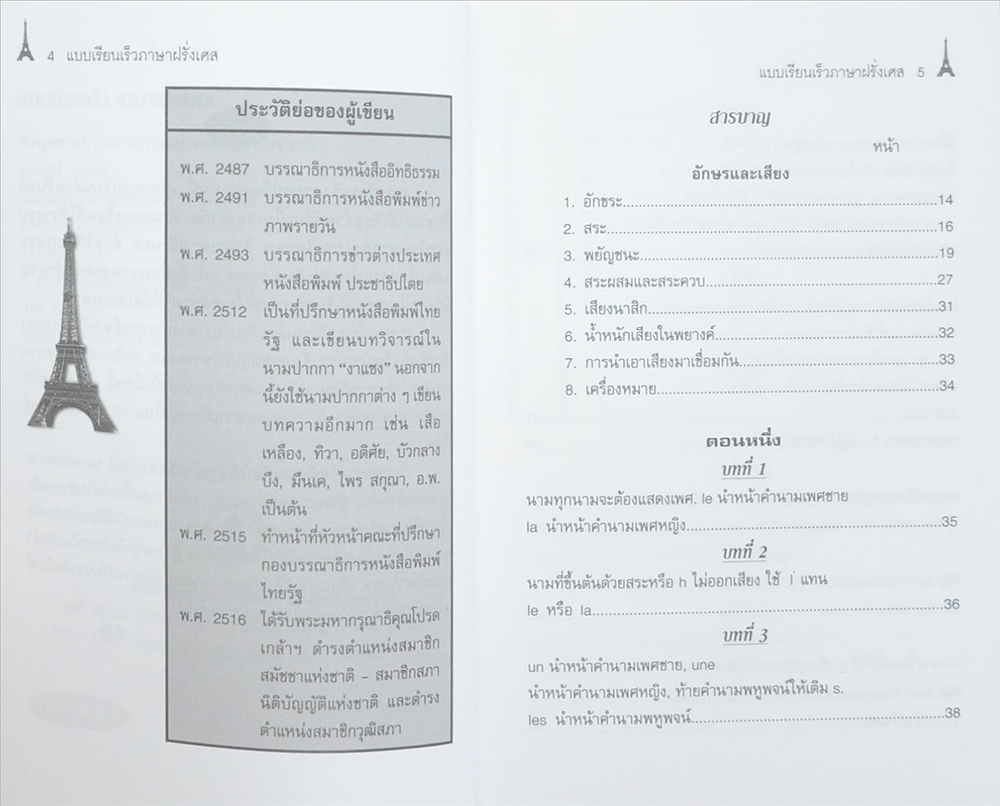 4 แบบเรียนเร็วภาษาฝรั่งเศส
ประวัติย่อของผู้เขียน
พ.ศ. 2487 บรรณาธิการหนังสืออิทธิธรรม
พ.ศ. 2491 บรรณาธิการหนังสือพิมพ์ข่าว
ภาพรายวัน
พ.ศ. 2493 บรรณาธิการข่าวต่างประเทศ
หนังสือพิมพ์ ประชาธิปไตย
พ.ศ. 2512 เป็นที่ปรึกษาหนังสือพิมพ์ไทย
รัฐ และเขียนบทวิจารณ์ใน
นามปากกา “งาแซง” นอกจาก
นี้ยังใช้นามปากกาต่าง ๆ เขียน
บทความอีกมาก เช่น เสือ
เหลือง, ทิวา, อดิศัย, บัวกลาง
บึง, มึนเค, ไพร สกุณา, อ.พ.
เป็นต้น
พ.ศ. 2515 ทำหน้าที่หัวหน้าคณะที่ปรึกษา
กองบรรณาธิการหนังสือพิมพ์
ไทยรัฐ
พ.ศ. 2516 ได้รับพระมหากรุณาธิคุณโปรด
เกล้าฯ ดำรงตำแหน่งสมาชิก
สมัชชาแห่งชาติ – สมาชิกสภา
นิติบัญญัติแห่งชาติ และดำรง
ตำแหน่งสมาชิกวุฒิสภา
แบบเรียนเร็วภาษาฝรั่งเศส 5
สารบาญ
หน้า
อักษรและเสียง
1. อักขระ...14
2. สระ...16
3. พยัญชนะ...19
4. สระผสมและสระควบ...27
5. เสียงนาสิก...31
6. น้ำหนักเสียงในพยางค์...32
7. การนำเอาเสียงมาเชื่อมกัน...33
8. เครื่องหมาย...34
ตอนหนึ่ง
บทที่ 1
นามทุกนามจะต้องแสดงเพศ. le นำหน้าคำนามเพศชาย
la นำหน้าคำนามเพศหญิง...35
บทที่ 2
นามที่ขึ้นต้นด้วยสระหรือ h ไม่ออกเสียง ใช้ l' แทน
le หรือ la...36
บทที่ 3
un นำหน้าคำนามเพศชาย, une
นำหน้าคำนามเพศหญิง, ท้ายคำนามพหูพจน์ให้เติม s.
les นำหน้าคำนามพหูพจน์...38